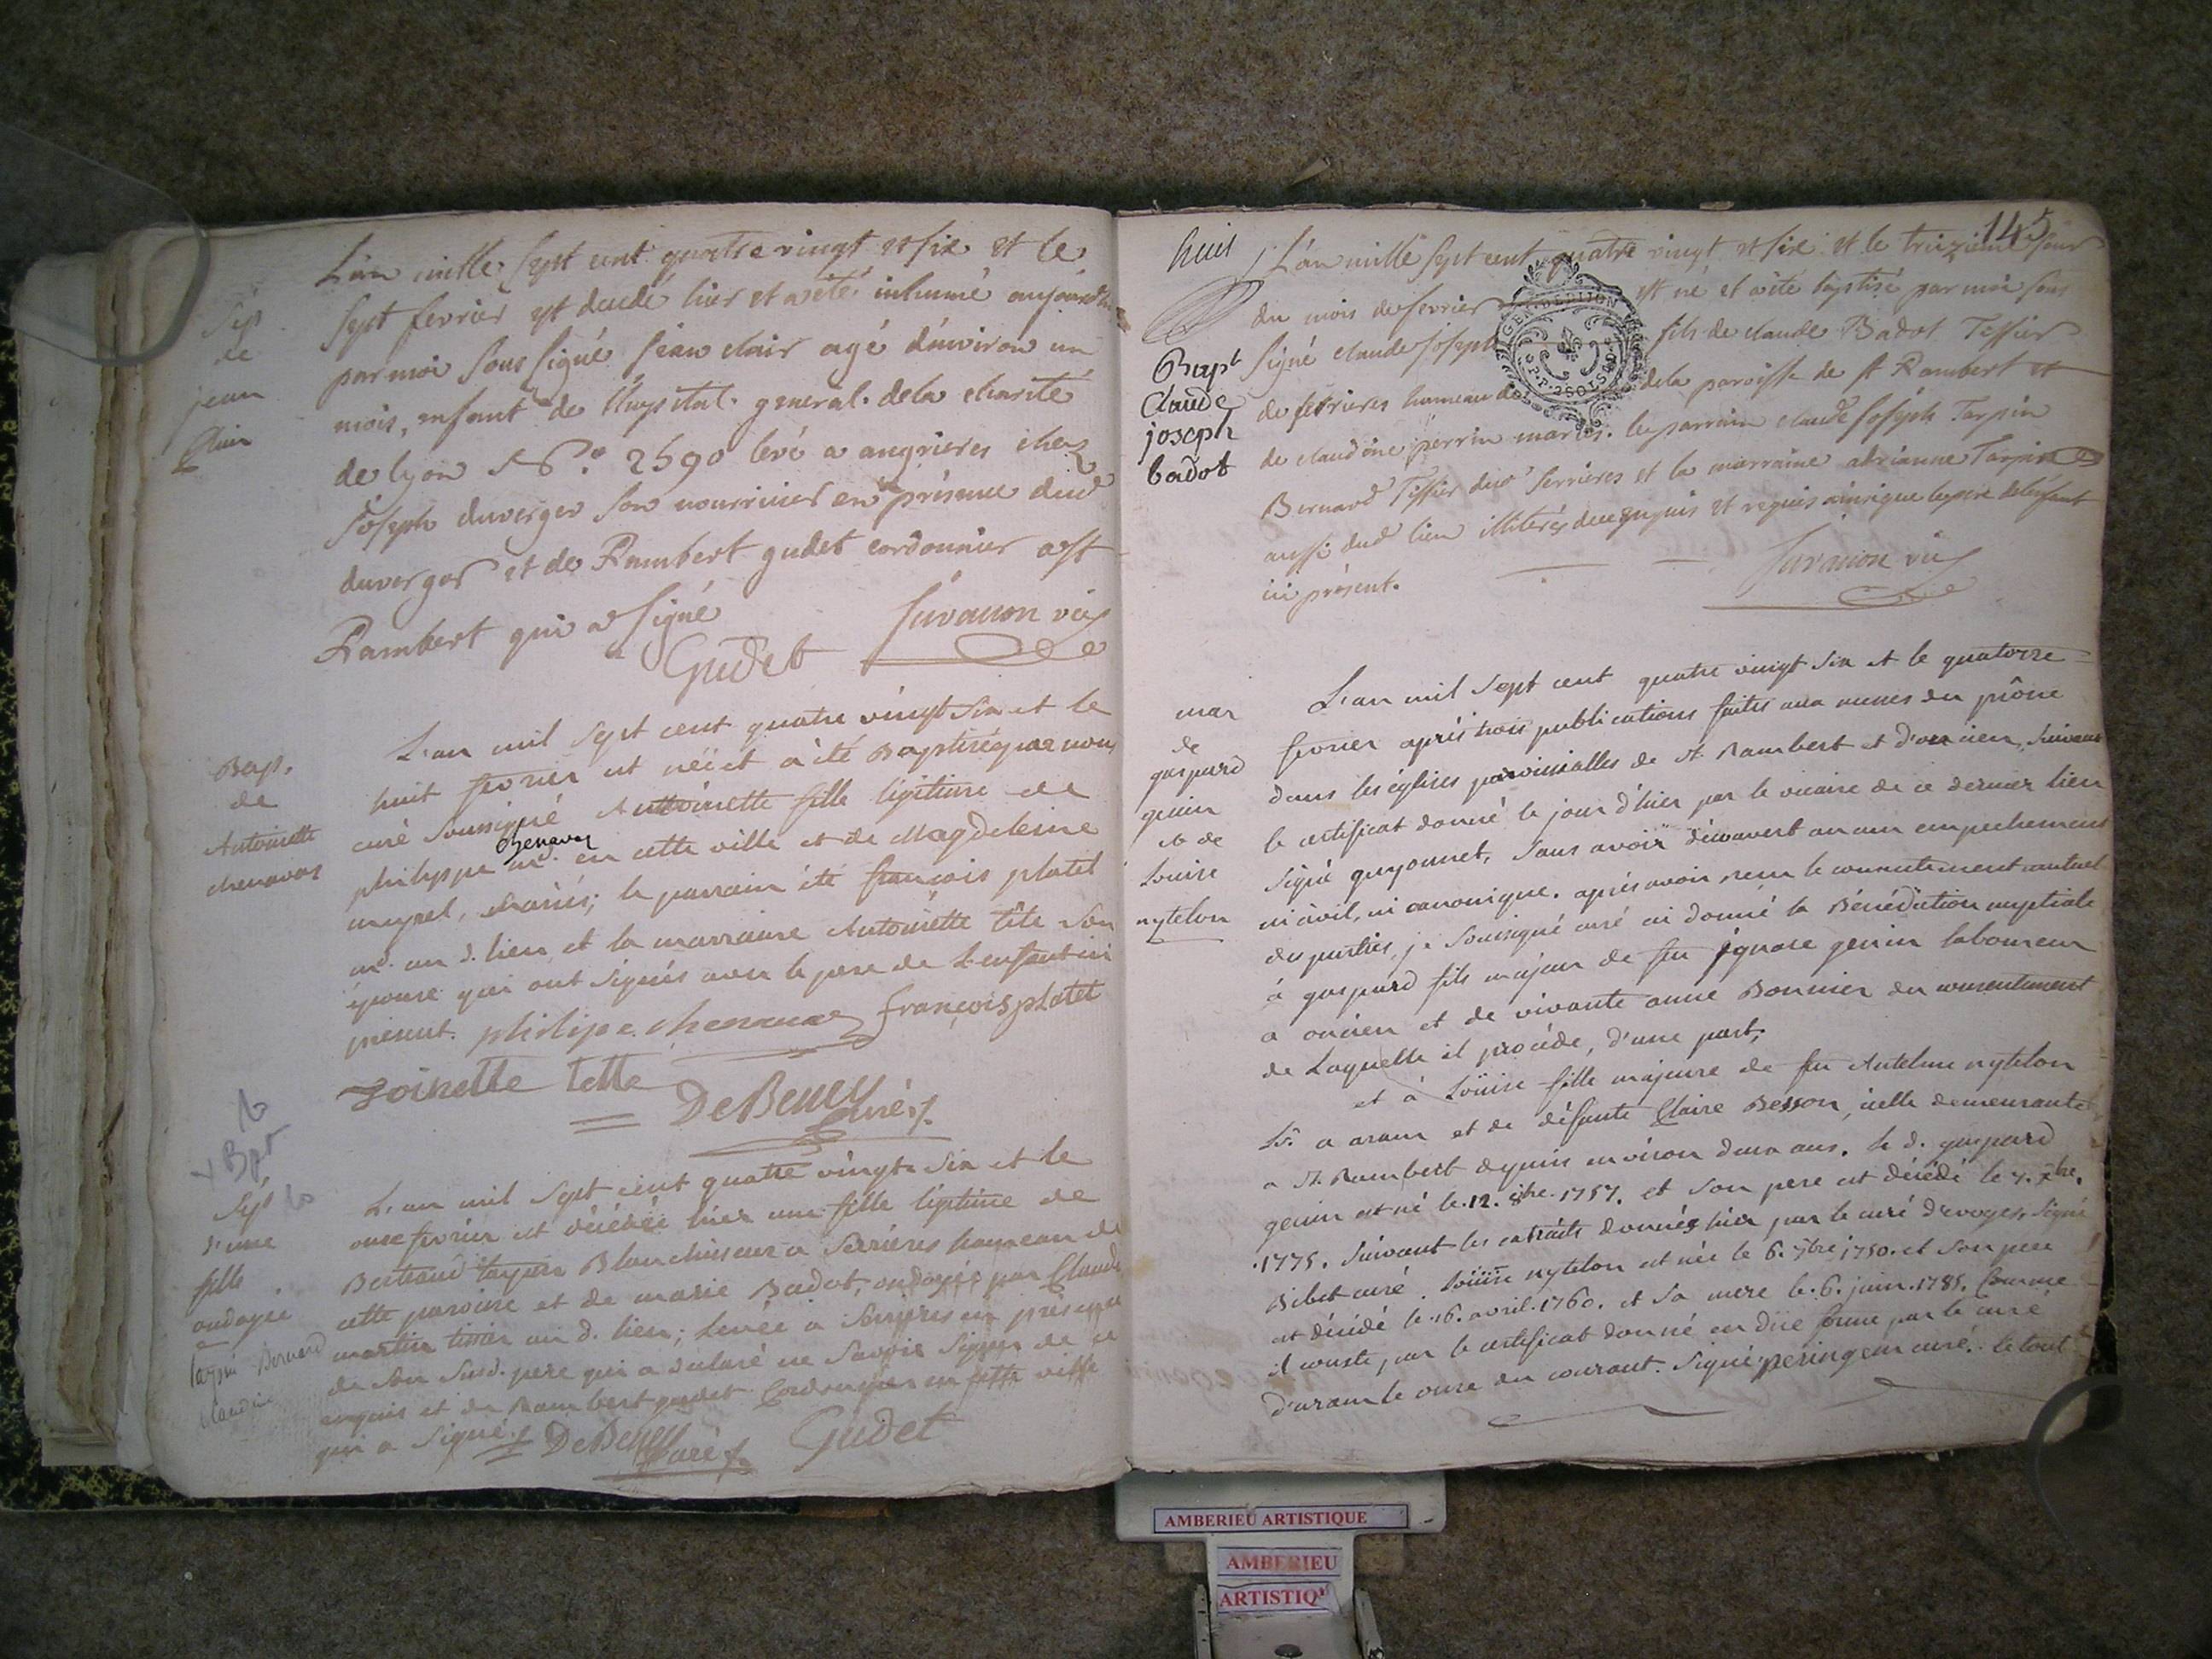 Sep
de
jean
Clair
L'an mille sept cent quatre vingt et six et le
sept fevrier est decedé hier et a été inhumé aujourd'hui
par moi sous signé jean clair agé d'environ un
mois, enfant de l'hopital general de la charité
de lyon N.° 2590 levé a angrieres chez
joseph duverger son nourricier en présence dud
duverger et de Rambert gudet cordonnier a st
Rambert qui a signé
Gudet
Bap.
de
Antoinette
chenavas
L'an mil sept cent quatre vingt six et le
huit fevrier est née et a été Baptisée par nous
curé soussigné Antoinette fille légitime de
philippe chenavas md. en cette ville et de Magdeleine
mariés; le parrain été françois platet
md. au d. lieu et la marraine Antoinette tête son
épouse qui ont signés avec le pere de l'enfant ici
présent. philipe chenavas françois platet
toinette tette
curé
Sep
d'une
fille
ondoyée
L'an mil sept cent quatre vingt six et le
onze fevrier est décédée hier une fille légitime de
Bertrand tarpin Blanchisseur a Serrières hameau de
cette paroisse et de marie Badot, ondoyée par Claude
martin tissier au d. lieu; levée a Serrieres en présence
de son susd. pere qui a déclaré ne savoir signer de ce
enquis et de Rambert gudet Cordonnier en cette ville
qui a signé
curé Gudet
145
huit
Bapt
Claude
joseph
badot
L'an mille sept cent quatre vingt et six et le treizieme jour
du mois de fevrier est né et a été baptisé par moi sous
signé claude joseph fils de claude Badot Tessier
de serrieres hameau de la paroisse de st Rambert et
de claudine perrin mariés. le parrain claude joseph Tarpin
Bernard Tissier dud serrieres et la marraine adrianne Tarpin
aussi dud lieu illiterés de ce enquis et requis ainsi que le pere de l'enfant
ici présent.
GEN. DE DIJON
P.P. 2 SOLS
mar
de
gaspard
genin
et de
Louise
nytelon
L'an mil sept cent quatre vingt six et le quatorze
fevrier après trois publications faites aux messes du prône
dans les églises paroissialles de st. Rambert et d'oncieu, suivant
le certificat donné le jour d'hier par le vicaire de ce dernier lieu
signé guyonnet, sans avoir découvert aucun empechement
ni civil, ni canonique. après avoir recu le consentement mutuel
des parties, je soussigné curé ai donné la Bénédiction nuptiale
à gaspard fils majeur de feu ignace genin laboureur
a oncieu et de vivante anne Bonnier du consentement
de laquelle il procéde, d'une part;
et à Loüise fille majeure de feu Antelme nytelon
a aram et de défunte Claire Besson, icelle demeurante
a St. Rambert depuis environ deux ans. le d. gaspard
genin est né le 12. 8bre. 1757. et son pere est décédé le 7. 7bre.
1775. suivant les extraits donnés hier par le curé d'evoges, signé
Bibet curé. Loüise nytelon est née le 6. 7bre 1750. et son pere
est décédé le 16. avril. 1760. et sa mere le 6. juin. 1785. Comme
il conste par le certificat donné en düe forme par le curé
d'aram le onze du courant. signé peringeur curé. le tout
AMBERIEU ARTISTIQUE
AMBERIEU
ARTISTIQ